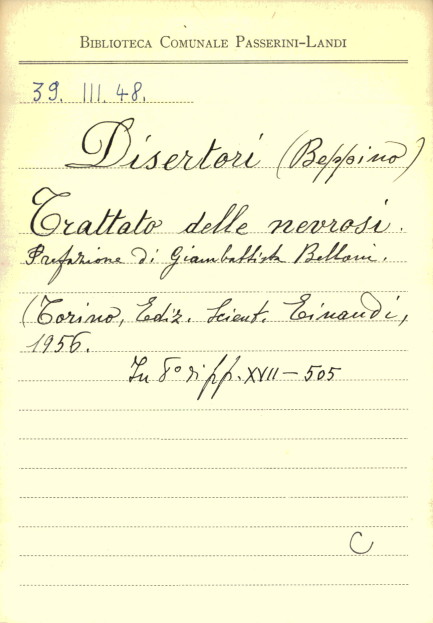 BIBLIOTECA COMUNALE PASSERINI-LANDI
39. III. 48.
Disertori (Beppino)
Trattato delle nevrosi.
Prefazione di Giambattista Belloni.
(Torino, Ediz. Scient. Einaudi,
1956.
In 8° di pp. XVII - 505
C